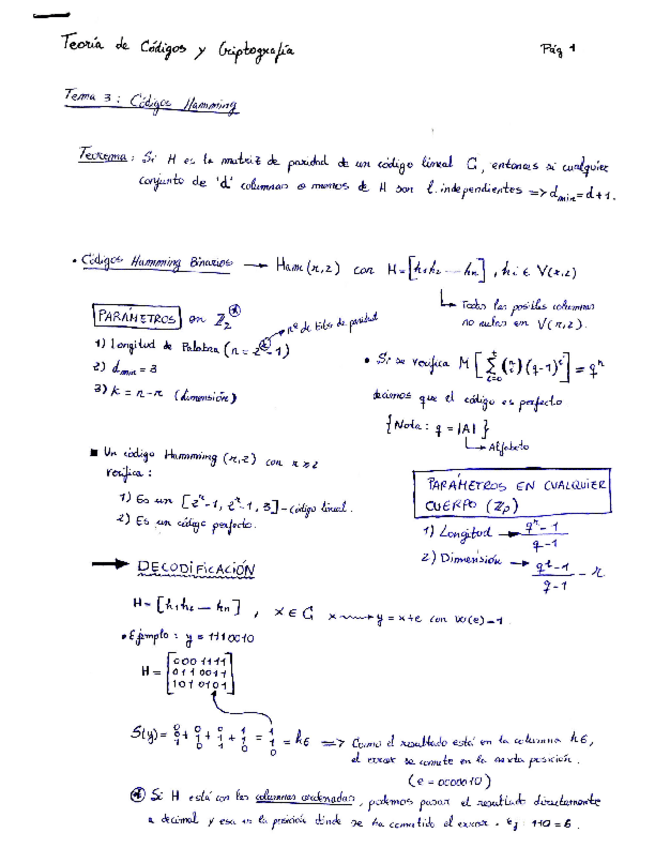 Teoría de Códigos y Criptografía
Pág 1
Tema 3: Códigos Hamming
Teorema: Si H es la matriz de paridad de un código lineal C, entonces si cualquier
conjunto de 'd' columnas o menos de H son l. independientes => dmin = d+1.
• Códigos Hamming Binarios → Ham(r,2) con H=[h1h2 --- hn], hi ∈ V(r,2)
↳ Todas las posibles columnas
no nulas en V(r,2).
PARÁMETROS en Z2 ⊛
1) Longitud de Palabra (n = 2^r - 1)
nº de bits de paridad
2) dmin = 3
3) k = n-r (dimensión)
• Si se verifica M[∑_{i=0}^{t} (n i)(q-1)^i] = q^n
decimos que el código es perfecto
{Nota: q = |A|}
↳ Alfabeto
■ Un código Hamming (r,2) con r≥2
verifica:
1) Es un [2^r-1, 2^r-1, 3] - código lineal.
2) Es un código perfecto.
PARÁMETROS EN CUALQUIER
CUERPO (Zp)
1) Longitud → (q^r-1)/(q-1)
2) Dimensión → (q^r-1)/(q-1) - r
→ DECODIFICACIÓN
H=[h1h2 — hn], x ∈ C x → y = x+e con w(e)=1.
• Ejemplo: y = 1110010
H = [0001111
0110011
1010101]
S(y) = 001 + 010 + 011 + 110 = 110 = h6 => Como el resultado está en la columna h6,
el error se comete en la sexta posición.
(e = 0000010)
⊛ Si H está con las columnas ordenadas, podemos pasar el resultado directamente
a decimal y esa es la posición dónde se ha cometido el error. Ej: 110 = 6.